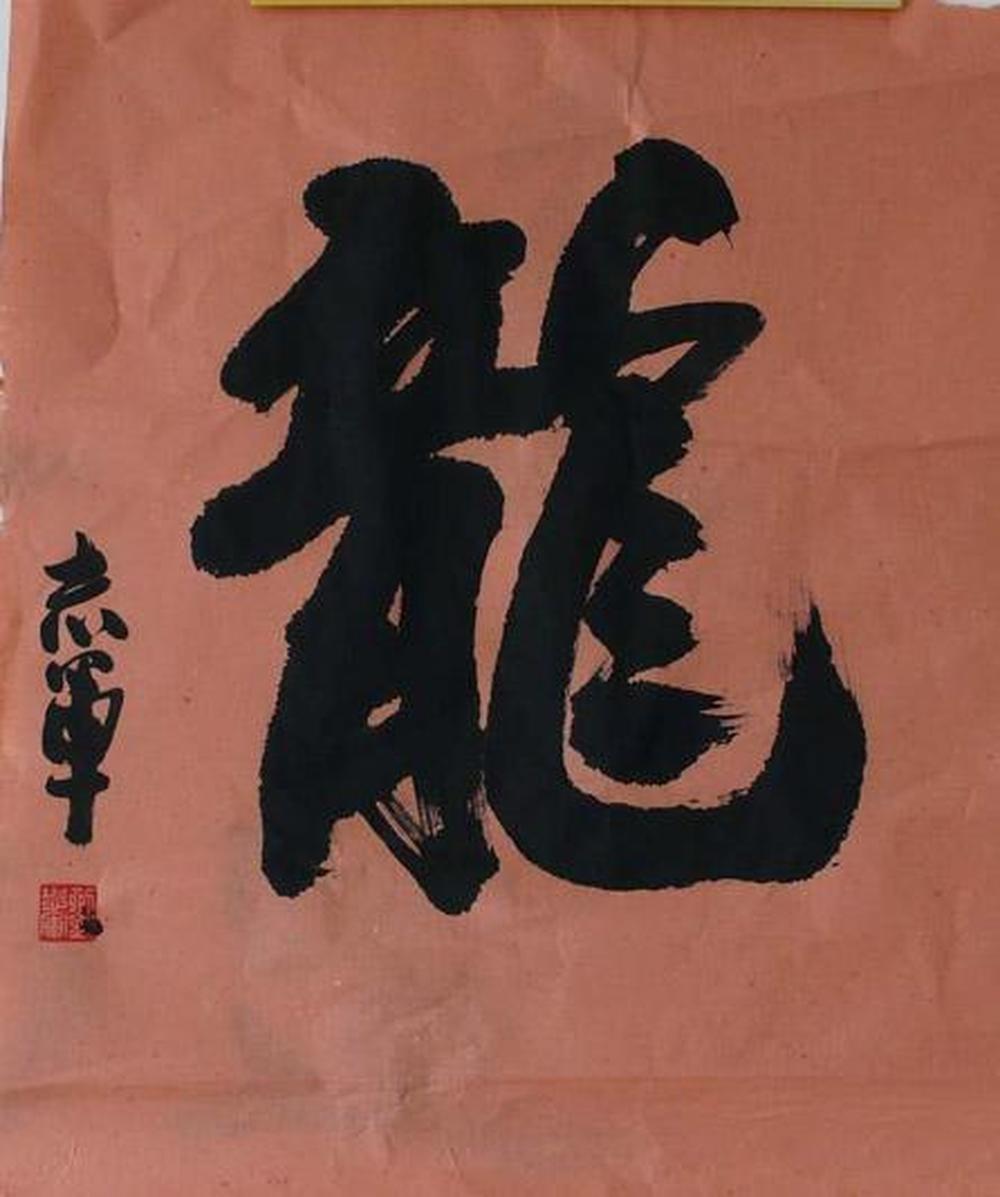 龍
志軍